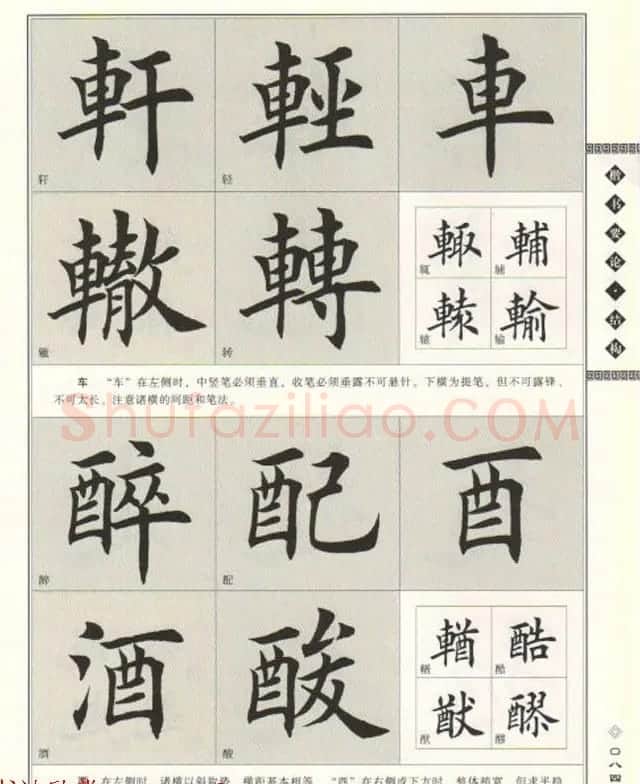 軒 輕 車
轩 轻
轍 轉
辙 转
輙 輔
辄 辅
轅 輸
辕 输
车 “车”在左侧时，中竖笔必须垂直，收笔必须垂露不可悬针。下横为提笔，但不可露锋、
不可太长，注意诸横的间距和笔法。
Shufaziliao.COM
醉 配 酉
醉 配
酒 酸
酒 酸
輶 酷
酷
猷 醪
猷 醪
在左侧时，诸横以斜取势，横距基本相等。“酉”在右侧或下方时，整体稍宽，但求平稳
楷书要论·结构
〇八四